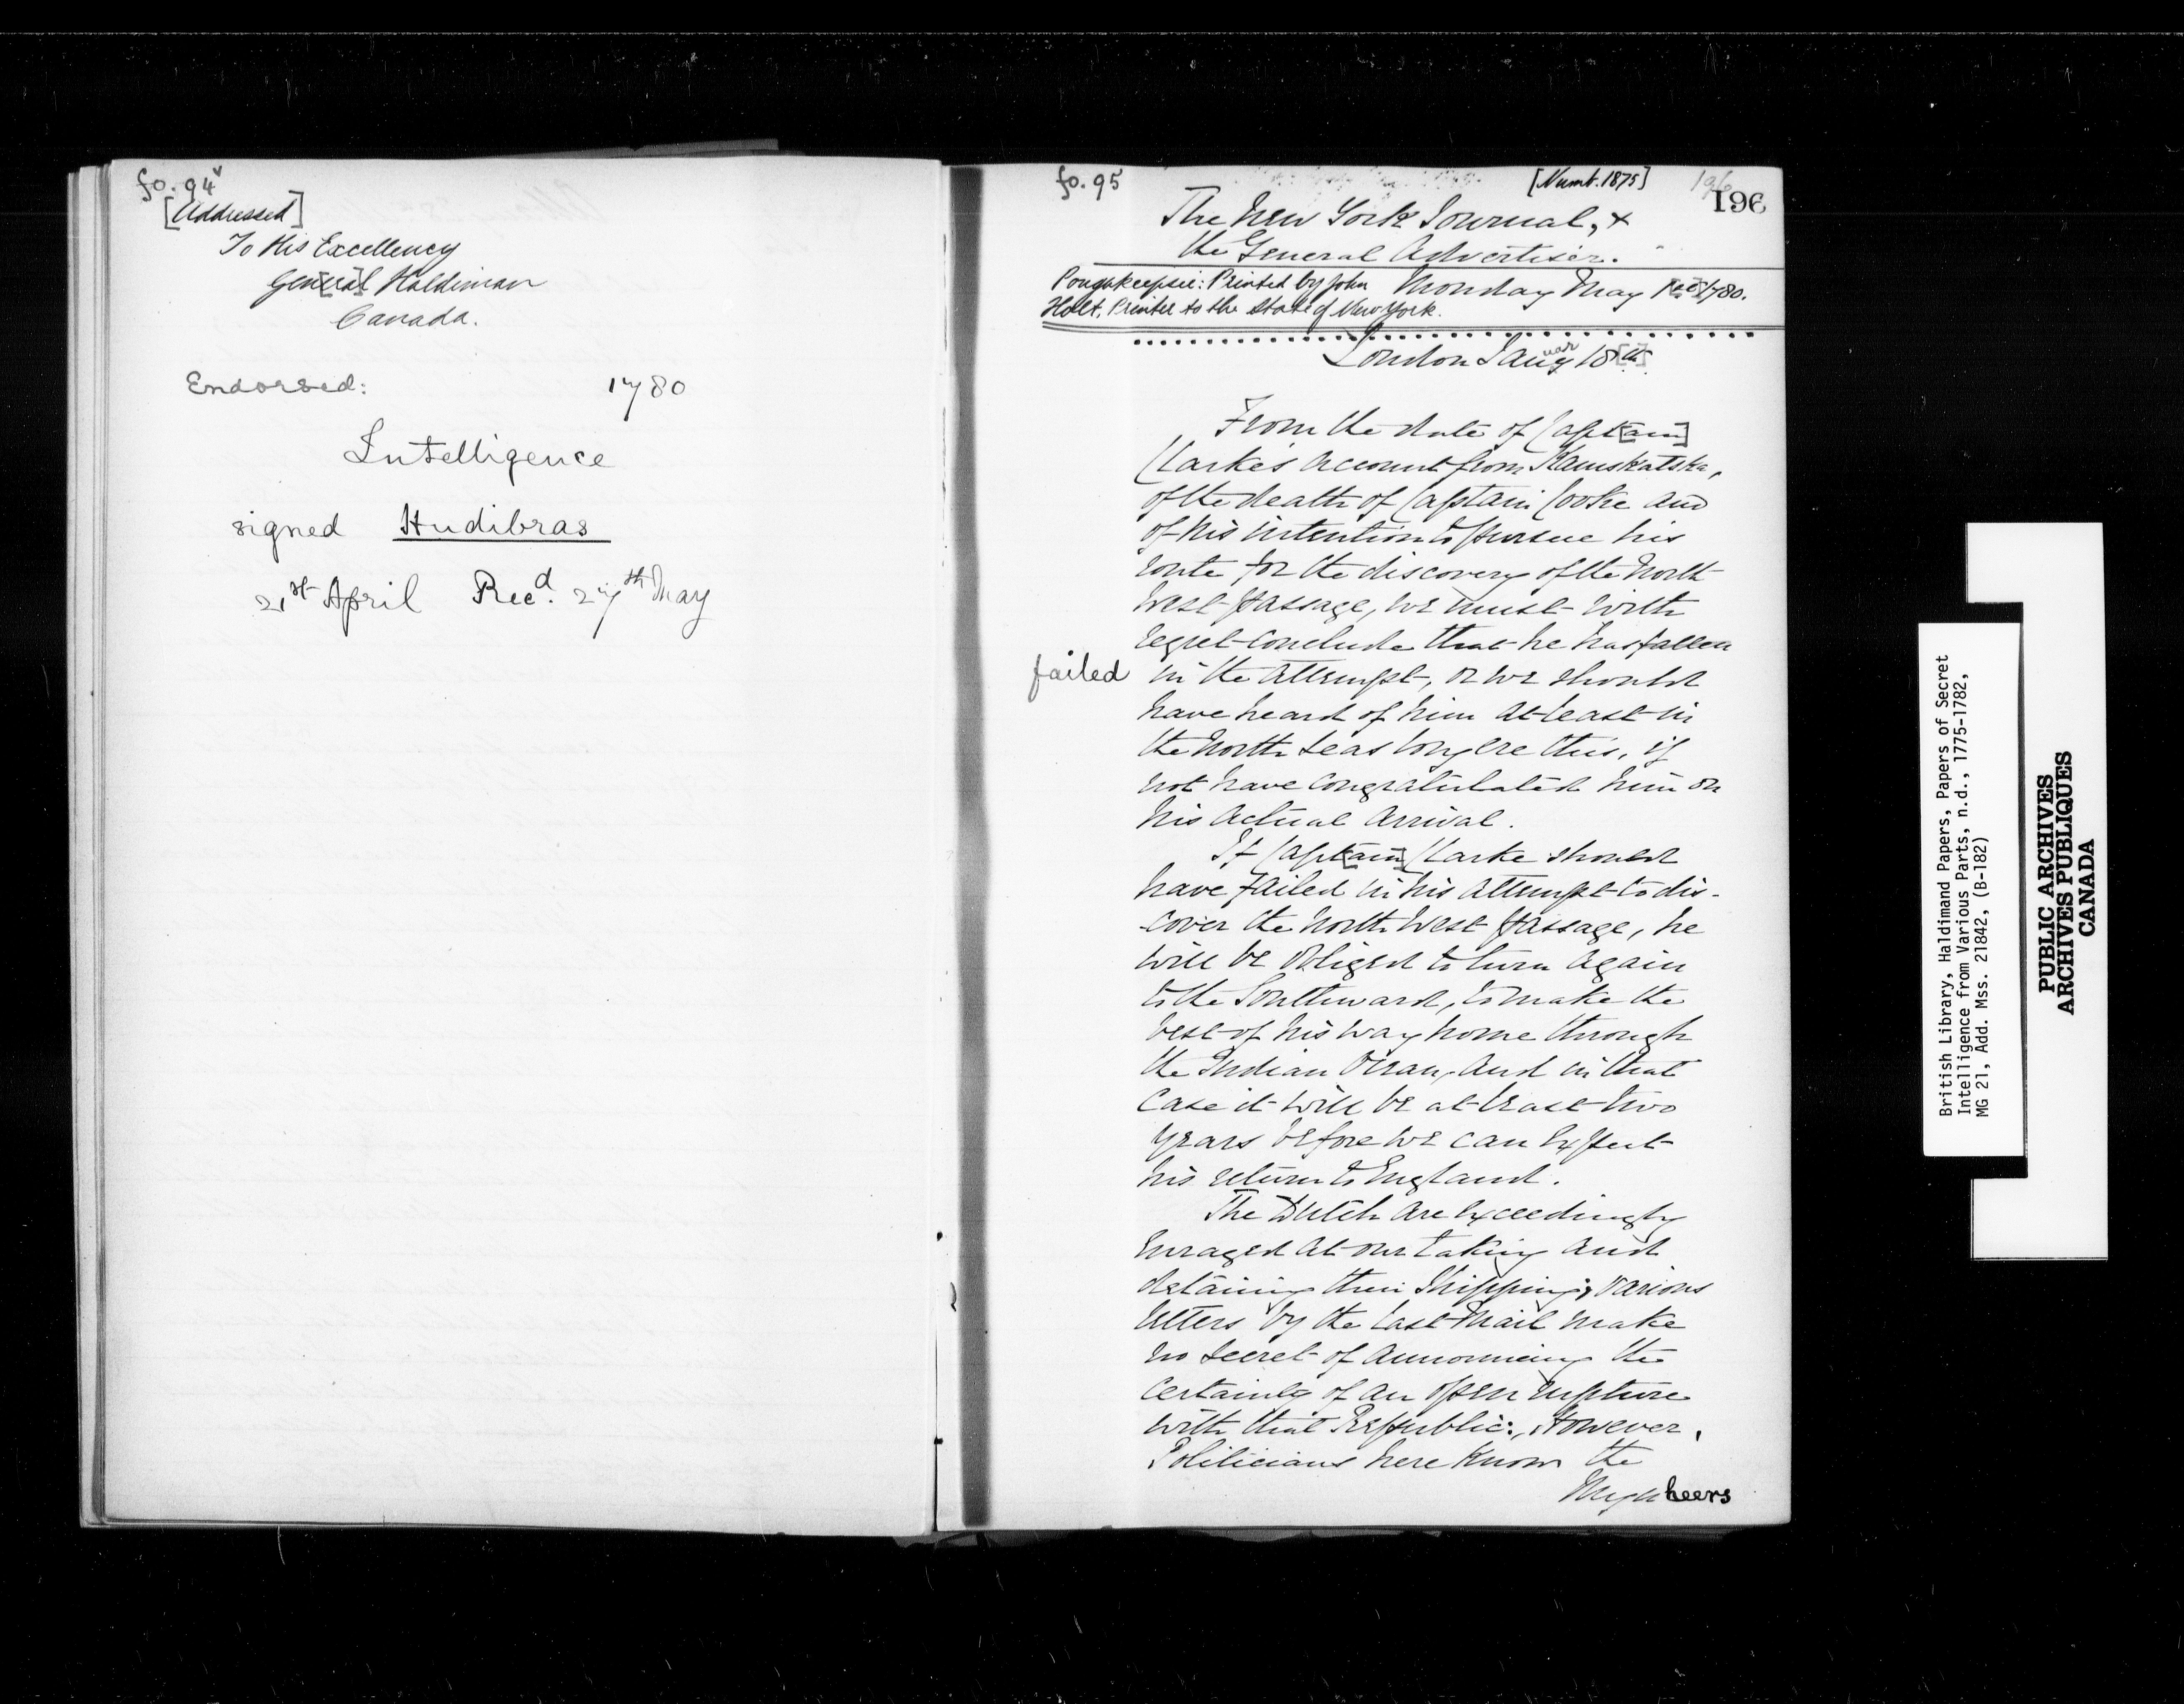 fo. 94v
[Addressed]
To His Excellency
Gen[era]l Haldiman
Canada.
Endorsed: 1780
Intelligence
signed Hudibras
21st April Recd. 27th May
fo. 95
[Numb. 1875]
196
196
The New York Journal, &
the General Advertiser.
Poughkeepsie: Printed by John
Holt, Printer to the State of New York.
Monday May 1780.
London January 18[th].
From the date of Capt[ain]
Clarke's account from Kamskatska,
of the death of Captain Cooke and
of his intention to pursue his
route for the discovery of the North
West passage, we must with
regret conclude that he has fallen
failed
in the attempt, or we should
have heard of him at least in
the North Seas long ere this, if
not have congratulated him on
his actual arrival.
If Capt[ain] Clarke should
have failed in his attempt to dis-
-cover the North West passage, he
will be obliged to turn again
to the Southward, to make the
best of his way home through
the Indian Ocean, and in that
case it will be at least two
years before we can expect
his return to England.
The Dutch are exceedingly
enraged at our taking and
detaining their Shipping; various
letters by the last Mail make
no secret of announcing the
certainty of an open rupture
with that Republic:, However,
Politicians here know the
Mynheers
British Library, Haldimand Papers, Papers of Secret
Intelligence from Various Parts, n.d., 1775-1782,
MG 21, Add. Mss. 21842, (B-182)
PUBLIC ARCHIVES
ARCHIVES PUBLIQUES
CANADA